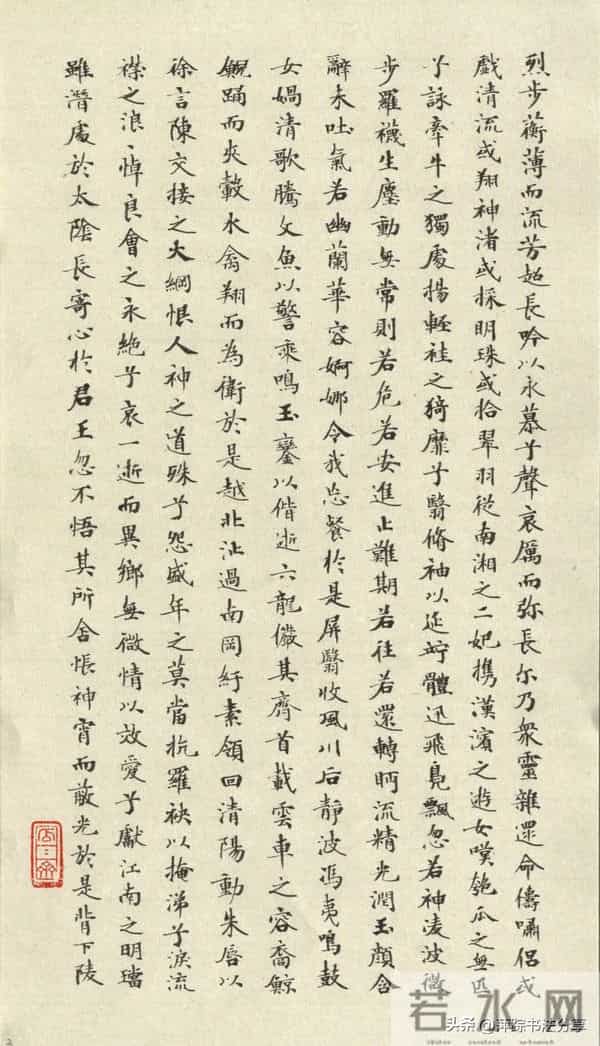 烈步蘅薄而流芳超長吟以永慕兮聲哀厲而弥長尔乃衆靈雜遝命儔嘯侶或
戲清流或翔神渚或採明珠或拾翠羽從南湘之二妃攜漢濱之遊女嘆匏瓜之無匹
兮詠牽牛之獨處揚輕袿之猗靡兮翳脩袖以延竚體迅飛鳧飄忽若神淩波微
步羅襪生塵動無常則若危若安進止難期若往若還轉眄流精光潤玉顏含
辭未吐氣若幽蘭華容婀娜令我忘餐於是屏翳收風川后靜波馮夷鳴鼓
女媧清歌騰文魚以警乘鳴玉鑾以偕逝六龍儼其齊首載雲車之容裔鯨
鯢踊而夾轂水禽翔而為衛於是越北沚過南岡紆素領回清陽動朱唇以
徐言陳交接之大綱恨人神之道殊兮怨盛年之莫當抗羅袂以掩涕兮淚流
襟之浪〻悼良會之永絶兮哀一逝而異鄉無微情以效愛兮獻江南之明璫
雖潛處於太陰長寄心於君王忽不悟其所舍悵神霄而蔽光於是背下陵
若水网
头条@萍踪书法分享